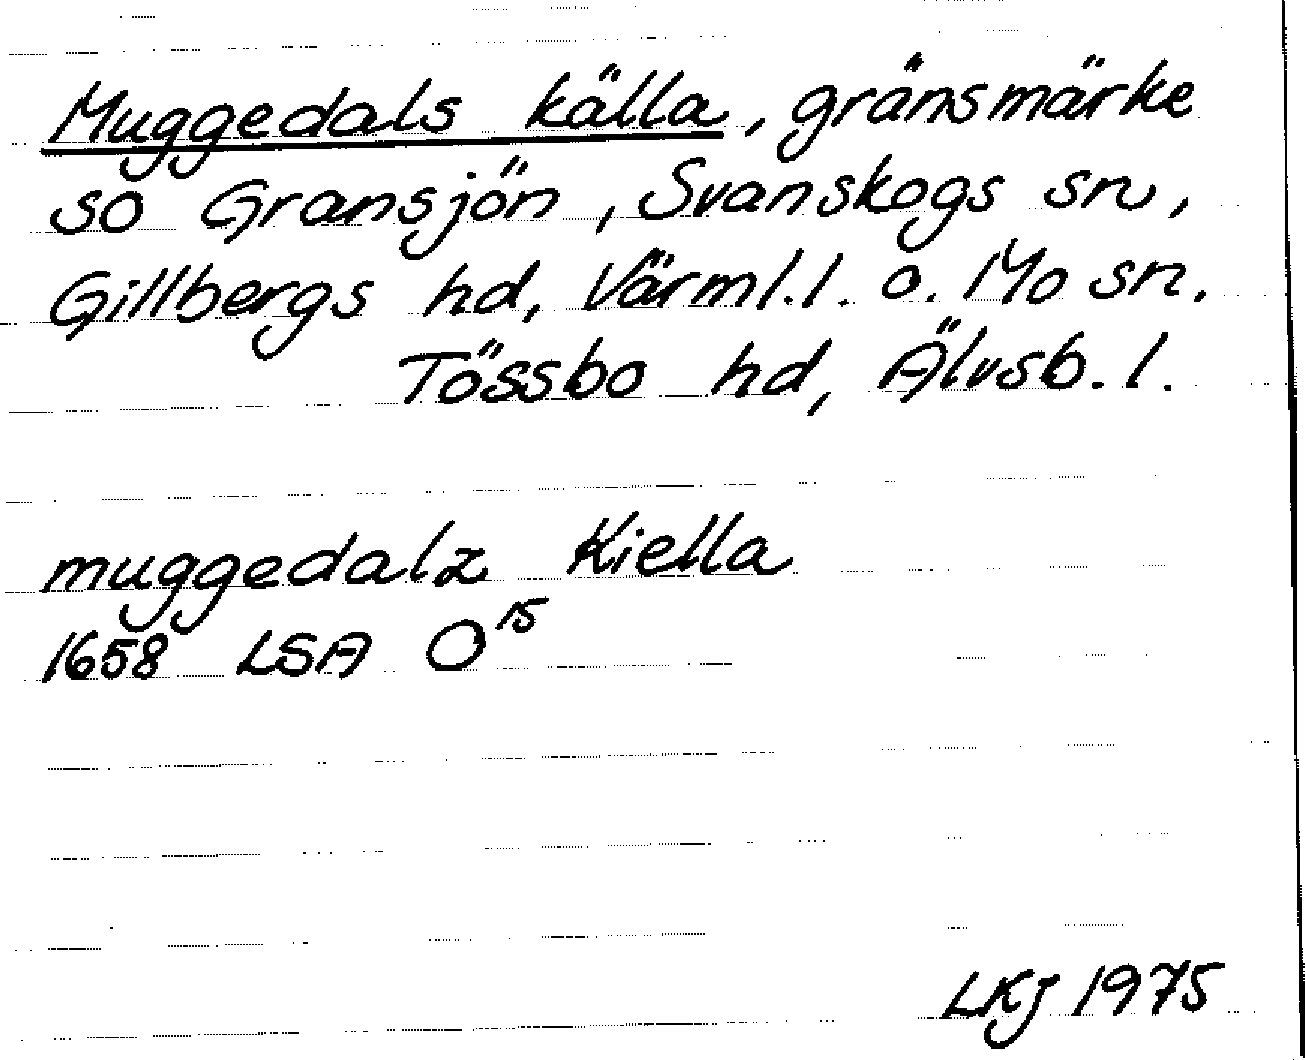 Muggedals källa, gränsmärke
so Gransjön, Svanskogs sn,
Gillbergs hd, Värml.l. o. Mo sn.
Tössbo hd, Älvsb. l.
muggedalz Kiella
1658 LSA O¹⁵
LKJ 1975